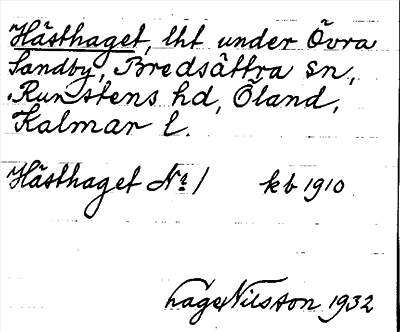 Hästhaget, lht under Övra
Sandby, Bredsättra sn,
Runstens hd, Öland,
Kalmar l.
Hästhaget No 1 kb 1910
Hage Nilsson 1932